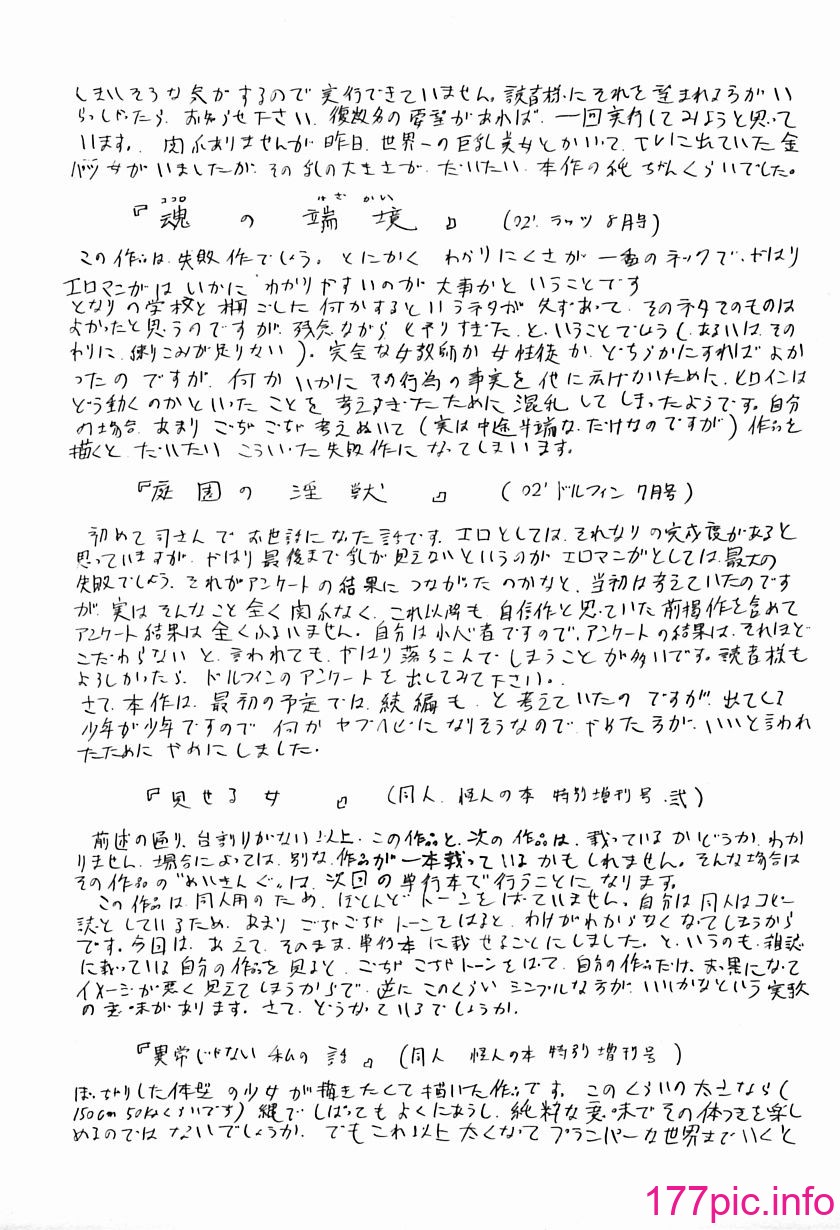 しまいそうな気がするので実行できていません。読者様にそれを望まれる方がい
らっしゃったら、お知らせ下さい。復数分の要望があれば、一回実行してみようと思って
います。関係ありませんが昨日、世界一の巨乳美女とかいって、TVに出ていた金
パツ女がいましたが、その乳の大きさが、だいたい、本作の純ちゃんくらいでした。
『魂の端境』 (02'. ラッツ 8月号)
ココロ はざかい
この作品は、失敗作でしょう。とにかく わかりにくさが 一番のネックで、やはり
エロマンガは いかに わかりやすいのが 大事かと いうことです
となりの学校と柵ごしに何かするというネタが 先ずあって、そのネタそのものは
よかったと思うのですが、残念ながら とやりすぎた、と、いうことでしょう(、あるいは、その
わりに、練りこみが足りない)。完全な女教師か女性徒か、どちらかにすればよか
ったの ですが、何か いかに その行為の事実を 他に広げないために、ヒロインは
どう動くのかといった ことを 考えすぎたために 混乱 して しまったようです。自分
の場合、あまり ごちゃごちゃ 考えぬいて(実は中途半端な、だけなのですが)作品を
描くと だいたい こういった失敗作に なってしまいます。
『庭園の淫獣』 (02' ドルフィン 7月号)
初めて司さんで お世話になった話です。エロとしては、それなりの完成度があると
思っていますが、やはり最後まで乳が見えないというのが エロマンガとしては、最大の
失敗でしょう。それがアンケートの結果に つながった のかなと、当初は考えていたのです
が、実は そんなこと 全く関係なく、これ以降も、自信作と思っていた前掲作を含めて
アンケート結果は 全くふるいません。自分は小心者ですので、アンケートの結果は、それほど
こだわらない と、言われても、やはり落ちこんでしまうこと が多いです。読者様も
よろしかったら、ドルフィンのアンケートを出してみて下さい。
さて、本作は、最初の予定では、続編も、と考えていたの ですが、出てくる
少年が少年ですので 何か ヤブヘビに なりそうなので、やめた方が、いいと言われ
たために やめにしました。
『見せる女』 (同人、怪人の本 特別増刊号.弐)
前述の通り、台割りがない以上、この作品と、次の作品は、載っているかどうか、わか
りません。場合によっては、別な作品が一本載っているかもしれません。そんな場合は
その作品の"めいきんぐ"は、次回の単行本で行うことになります。
この作品は、同人用のため、ほとんど トーンを はっていません。自分は同人はコピー
誌としているため、あまり ごちゃごちゃ トーンをはると、わけがわからなくなってしまうから
です。今回は、あえて、そのまま、単行本に載せることにしました。と、いうのも、雑誌
に載っている自分の作品を 見ると、ごちゃごちゃトーンをはって、自分の作品だけ、まっ黒になって
イメージが悪く見えてしまうからで、逆にこのくらい シンプルな方が、いいかなという実験
の意味があります。さて、どううつっているでしょうか。
『異常じゃない私の話』 (同人 怪人の本 特別増刊号)
177pic.info